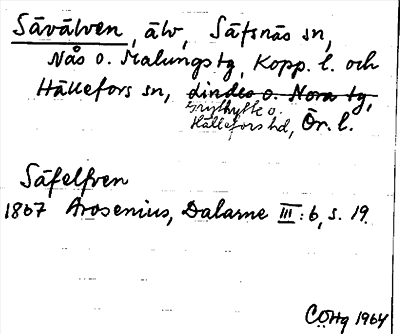 Sävälven, älv, Säfsnäs sn,
Nås o. Malungs tg, Kopp. l. och
Hällefors sn, Lindes o. Nora tg,
Grythytte o.
Hällefors hd, Ör. l.
Säfelfven
1867 Arosenius, Dalarne III: 6, s. 19
CÖHg 1964